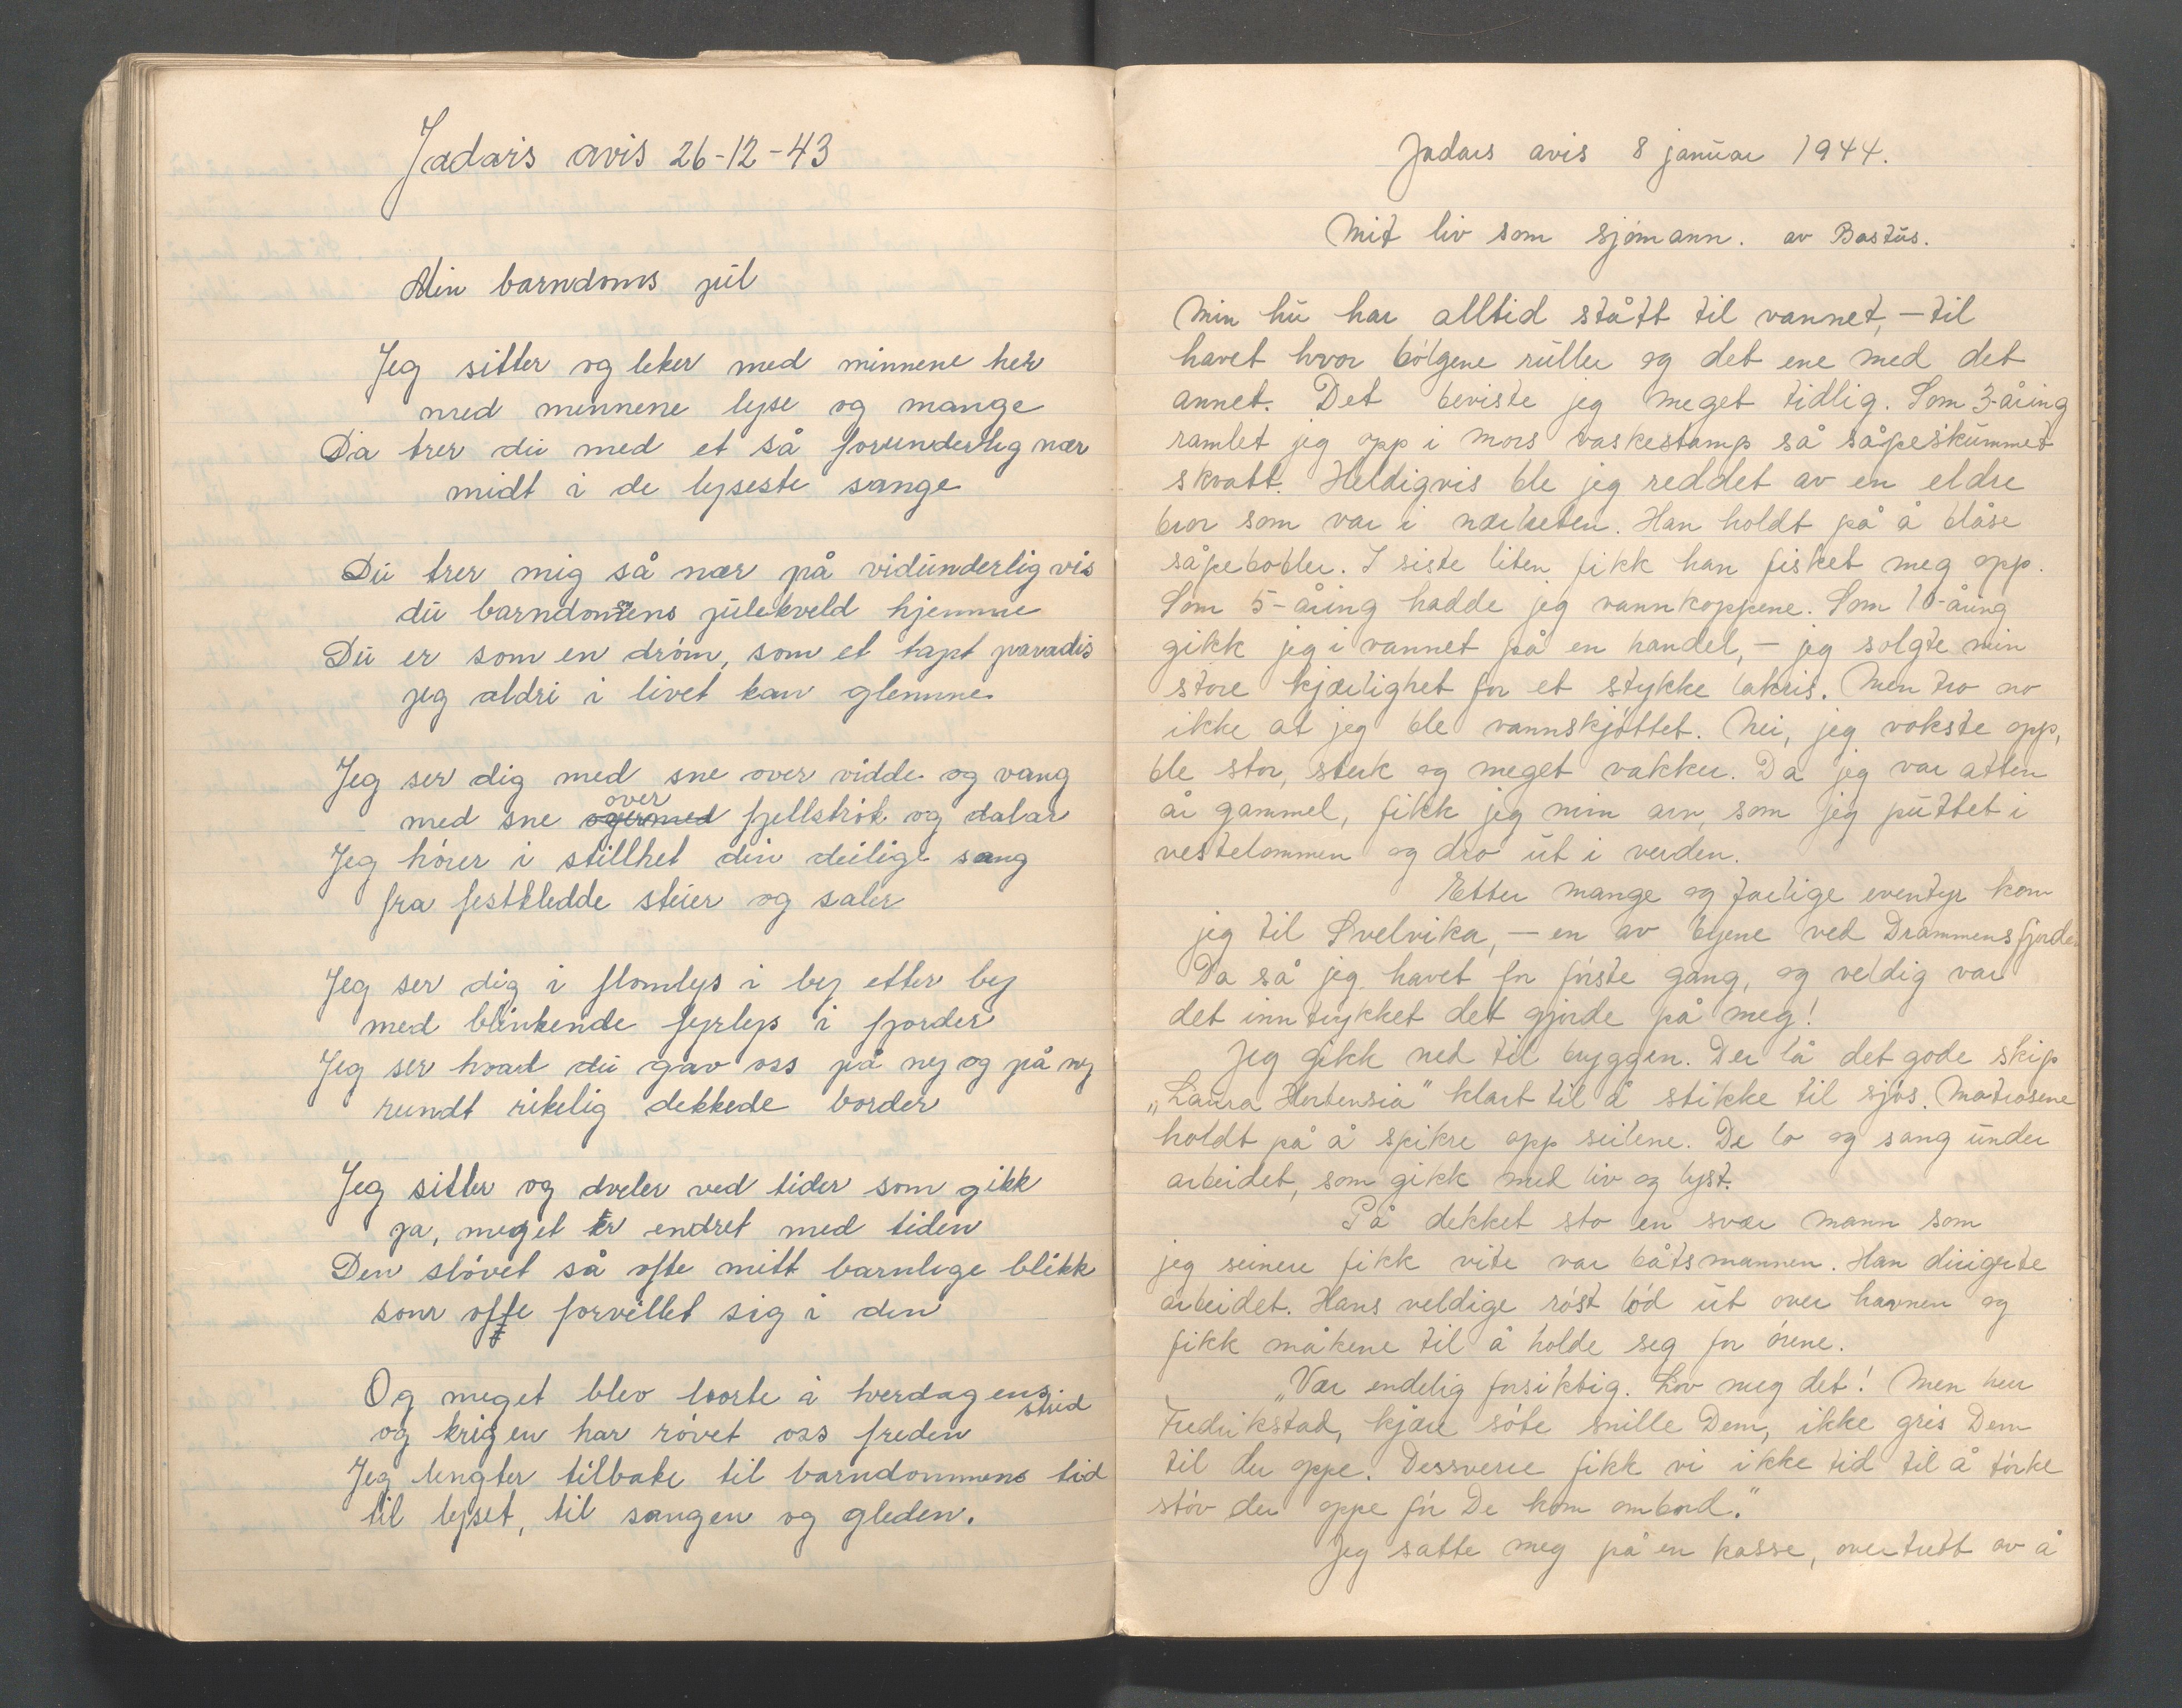 Jadars avis 26-12-43
Min barndoms jul
Jeg sitter og leker med minnene her
med minnene lyse og mange
Da trer du med et så forunderlig nær
midt i de lyseste sange
Du trer mig så nær på vidunderlig vis
du barndommens julekveld hjemme
Du er som en drøm, som et tapt paradis
jeg aldri i livet kan glemme
Jeg ser dig med sne over vidde og vang
med sne over fjellstrøk og dalar
Jeg hører i stillhet din deilige sang
fra festkledde stuer og saler
Jeg ser dig i flomlys i by etter by
med blinkende fyrlys i fjorder
Jeg ser hvad du gav oss på ny og på ny
rundt rikelig dekkede border
Jeg sitter og dveler ved tider som gikk
ja, meget er endret med tiden
Den sløvet så ofte mitt barnlige blikk
som ofte forvillet sig i den
Og meget blev borte i hverdagens strid
og krigen har røvet oss freden
Jeg lengter tilbake til barndommens tid
til lyset, til sangen og gleden.
Jadars avis 8 januar 1944.
Mit liv som sjømann. av Bastus.
Min hu har alltid stått til vannet, – til
havet hvor bølgene ruller og det ene med det
annet. Det beviste jeg meget tidlig. Som 3-åring
ramlet jeg opp i mors vaskestamp så såpeskummet
skvatt. Heldigvis ble jeg reddet av en eldre
bror som var i nærheten. Han holdt på å blåse
såpebobler. I siste liten fikk han fisket meg opp.
Som 5-åring hadde jeg vannkoppene. Som 10-åring
gikk jeg i vannet på en handel, – jeg solgte min
store kjærlighet for et stykke lakris. Men tro no
ikke at jeg ble vannskjøttet. Nei, jeg vokste opp,
ble stor, sterk og meget vakker. Da jeg var atten
år gammel, fikk jeg min arv, som jeg puttet i
vestelommen og dro ut i verden.
Etter mange og farlige eventyr kom
jeg til Svelvika, – en av byene ved Drammensfjorden
Da så jeg havet for første gang, og veldig var
det inntrykket det gjorde på meg!
Jeg gikk ned til bryggen. Der lå det gode skip
„Laura Hortensia" klart til å stikke til sjøs. Matrosene
holdt på å spikre opp seilene. De lo og sang under
arbeidet, som gikk med liv og lyst.
På dekket sto en svær mann som
jeg seinere fikk vite var båtsmannen. Han dirigerte
arbeidet. Hans veldige røst lød ut over havnen og
fikk måkene til å holde seg for ørene.
„Vær endelig forsiktig. Lov meg det! Men herr
Fredrikstad, kjære søte snille Dem, ikke gris Dem
til der oppe. Dessverre fikk vi ikke tid til å tørke
støv der oppe før De kom ombord."
Jeg satte meg på en kasse, overtrett av å